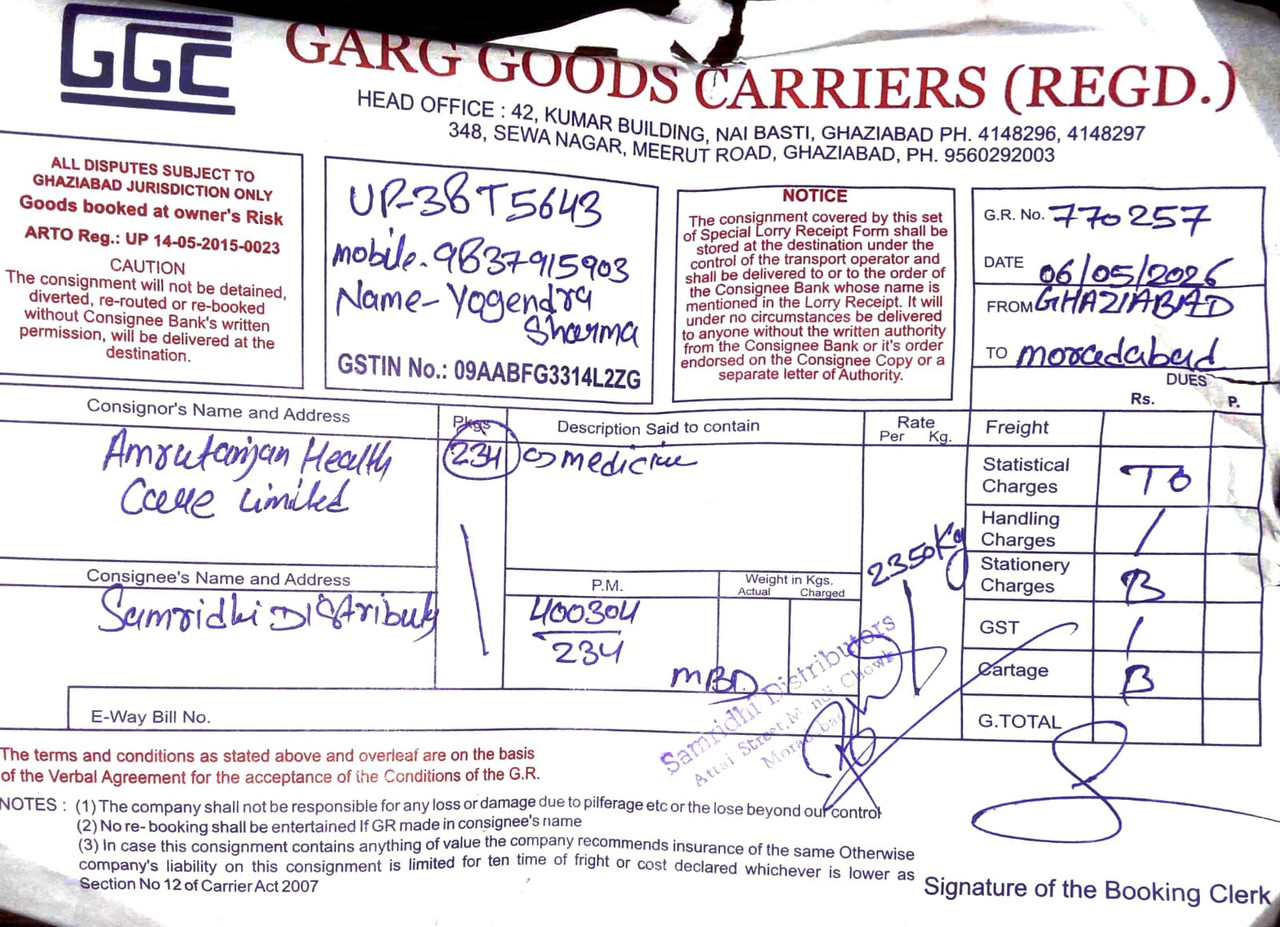 GGC
GARG GOODS CARRIERS (REGD.)
HEAD OFFICE : 42, KUMAR BUILDING, NAI BASTI, GHAZIABAD PH. 4148296, 4148297
348, SEWA NAGAR, MEERUT ROAD, GHAZIABAD, PH. 9560292003
ALL DISPUTES SUBJECT TO
GHAZIABAD JURISDICTION ONLY
Goods booked at owner's Risk
ARTO Reg.: UP 14-05-2015-0023
CAUTION
The consignment will not be detained,
diverted, re-routed or re-booked
without Consignee Bank's written
permission, will be delivered at the
destination.
UP-38T5643
mobile.9837915903
Name-Yogendra
Sharma
GSTIN No.: 09AABFG3314L2ZG
NOTICE
The consignment covered by this set
of Special Lorry Receipt Form shall be
stored at the destination under the
control of the transport operator and
shall be delivered to or to the order of
the Consignee Bank whose name is
mentioned in the Lorry Receipt. It will
under no circumstances be delivered
to anyone without the written authority
from the Consignee Bank or it's order
endorsed on the Consignee Copy or a
separate letter of Authority.
G.R. No. 770257
DATE 06/05/2026
FROM GHAZIABAD
TO moradabad
DUES
Rs. P.
Consignor's Name and Address
Amrutanjan Health
Care Limited
Pkgs
234
Description Said to contain
medicine
Rate
Per Kg.
2350Kg
Freight
Statistical
Charges
TO
Handling
Charges
/
Stationery
Charges
B
GST
/
Cartage
B
G.TOTAL
Consignee's Name and Address
Samridhi Distributy
P.M.
400304
234
Weight in Kgs.
Actual Charged
MBD
Samridhi Distributors
Attai Street, Mandi Chowk
Moradabad
E-Way Bill No.
The terms and conditions as stated above and overleaf are on the basis
of the Verbal Agreement for the acceptance of the Conditions of the G.R.
NOTES : (1) The company shall not be responsible for any loss or damage due to pilferage etc or the lose beyond our control
(2) No re- booking shall be entertained If GR made in consignee's name
(3) In case this consignment contains anything of value the company recommends insurance of the same Otherwise
company's liability on this consignment is limited for ten time of fright or cost declared whichever is lower as
Section No 12 of Carrier Act 2007
Signature of the Booking Clerk